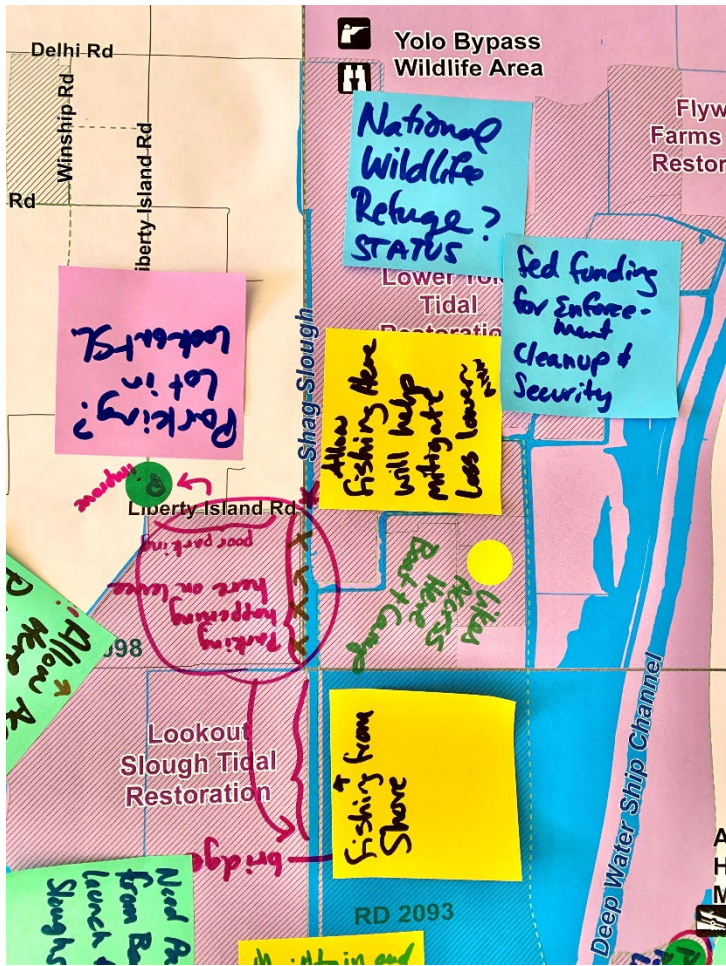 Delhi Rd
Winship Rd
Liberty Island Rd
Rd
Yolo Bypass
Wildlife Area
Flyw
Farms
Restor
National
Wildlife
Refuge?
STATUS
Lower Yolo
Tidal
Restoration
fed funding
for Enforce-
ment
cleanup &
Security
Parking?
Lot in
Lookout SL.
Shag Slough
Allow
fishing Here
will help
mitigate
loss lower
improve
P
Liberty Island Rd
poor parking
Parking
happening
here on levee
x
x
x
x
Likes
Access
Here
Boat & Camp
Allow Ac
Here
098
Lookout
Slough Tidal
Restoration
fishing from
Shore
bridge
RD 2093
Deep Water Ship Channel
Need
from Ba
launch
Sloughs
A
H
M